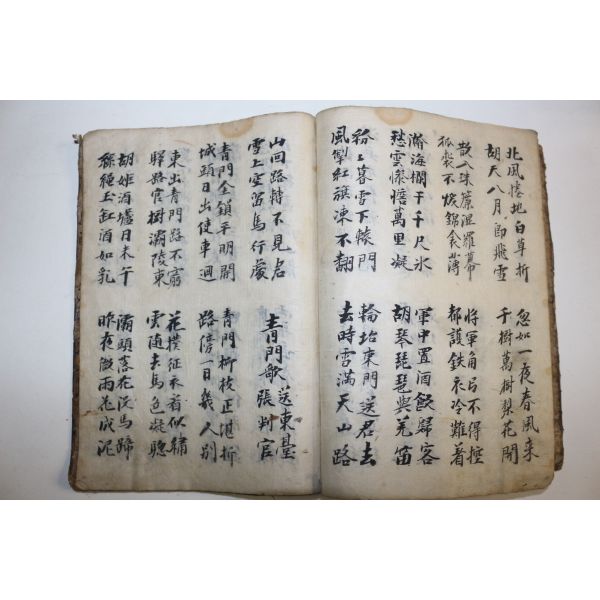 北風惓地白草折
胡天八月即飛雪
忽如一夜春風来
千樹萬樹梨花開
散入珠簾湿羅幕
狐裘不煖錦衾薄
将軍角弓不得控
都護鉄衣冷難着
瀚海欄干千尺氷
愁雲惨憺萬里凝
軍中置酒飲歸客
胡琴琵琶與羌笛
紛〻暮雪下轅門
風掣紅旗凍不翻
輪坮東門送君去
去時雪満天山路
山回路轉不見君
雪上空留馬行處
青門歌 送東臺
張判官
青門金鎖平明開
城頭日出使車廻
青門柳枝正堪折
路傍日幾人別
東出青門路不窮
驛路官樹灞陵東
花撲征衣看似繡
雲随去馬色凝驄
胡姬酒壚日未午
絲繩玉缸酒如乳
灞頭落花没馬蹄
昨夜微雨花成泥